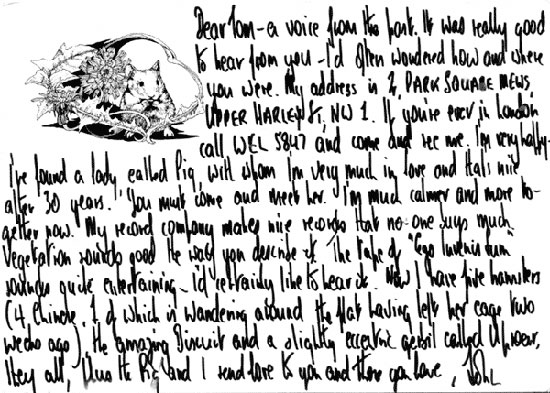 Dear Tom - a voice from the past. It was really good
to hear from you - I'd often wondered how and where
you were. My address is 2, PARK SQUARE MEWS,
UPPER HARLEY St, NW 1. If you're ever in London
call WEL 5847 and come and see me. I'm very happy -
I've found a lady called Pig, with whom I'm very much in love and that's nice
after 30 years. You must come and meet her. I'm much calmer and more to-
gether now. My record company makes nice records that no-one buys much
Vegetation sounds good the way you describe it. The tape of "Ego
sounds quite entertaining - I'd certainly like to hear it. Now I have five hamsters
(4 Chinese, 1 of which is wandering around the flat having left her cage two
weeks ago), the amazing Biscuit and a slightly eccentric gerbil called Uproar,
they all, plus the Pig and I send love to you and those you love, John